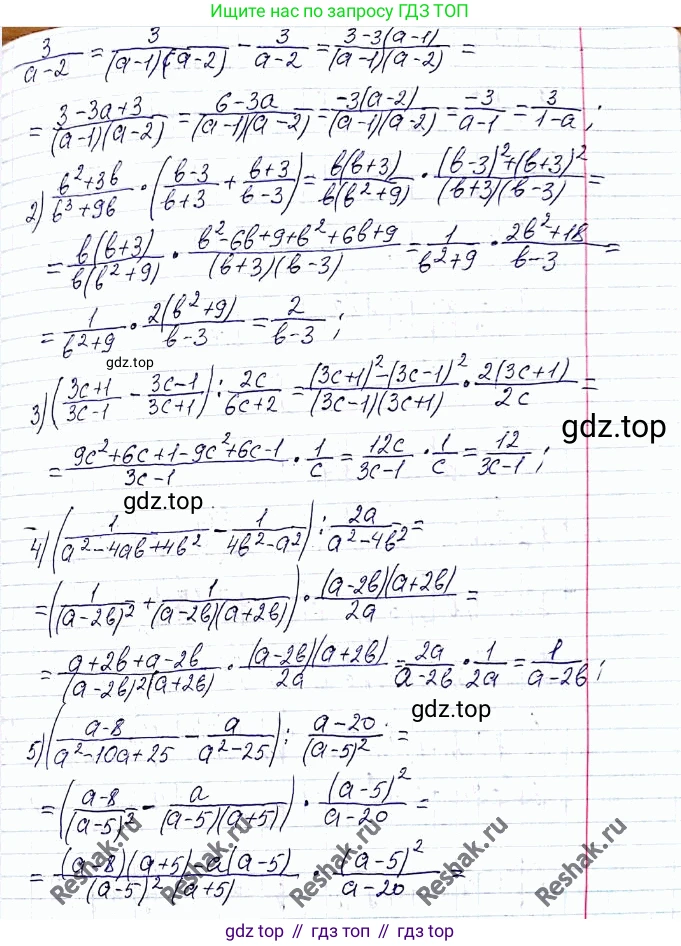 Ищите нас по запросу ГДЗ ТОП
3/(a-2) = 3/((a-1)(a-2)) - 3/(a-2) = (3-3(a-1))/((a-1)(a-2)) =
= (3-3a+3)/((a-1)(a-2)) = (6-3a)/((a-1)(a-2)) = (-3(a-2))/((a-1)(a-2)) = -3/(a-1) = 3/(1-a);
2) (в²+3в)/(в³+9в) · ((в-3)/(в+3) + (в+3)/(в-3)) = (в(в+3))/(в(в²+9)) · ((в-3)²+(в+3)²)/((в+3)(в-3)) =
= (в(в+3))/(в(в²+9)) · (в²-6в+9+в²+6в+9)/((в+3)(в-3)) = 1/(в²+9) · (2в²+18)/(в-3) =
= 1/(в²+9) · (2(в²+9))/(в-3) = 2/(в-3);
gdz.top
3) ((3c+1)/(3c-1) - (3c-1)/(3c+1)) : 2c/(6c+2) = ((3c+1)²-(3c-1)²)/((3c-1)(3c+1)) · (2(3c+1))/2c =
gdz.top
= (9c²+6c+1-9c²+6c-1)/(3c-1) · 1/c = 12c/(3c-1) · 1/c = 12/(3c-1);
gdz.top
4) (1/(a²-4aв+4в²) - 1/(4в²-a²)) : 2a/(a²-4в²) =
= (1/(a-2в)² + 1/((a-2в)(a+2в))) · ((a-2в)(a+2в))/2a =
= (a+2в+a-2в)/((a-2в)²(a+2в)) · ((a-2в)(a+2в))/2a = 2a/(a-2в) · 1/2a = 1/(a-2в);
gdz.top
5) ((a-8)/(a²-10a+25) - a/(a²-25)) : (a-20)/(a-5)² =
= ((a-8)/(a-5)² - a/((a-5)(a+5))) · (a-5)²/(a-20) =
= ((a-8)(a+5)-a(a-5))/((a-5)²(a+5)) · (a-5)²/(a-20) =
Reshak.ru
Reshak.ru
Reshak.ru
gdz.top // гдз.топ // gdz.top // гдз.топ